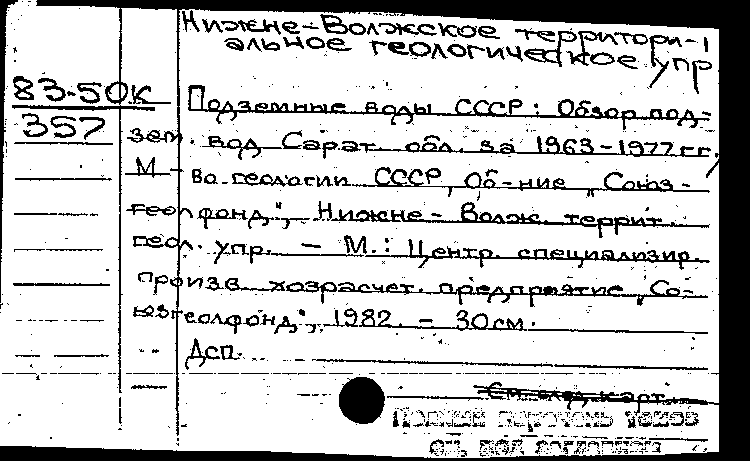 Нижне-Волжское территори-
альное геологическое упр
83-50к
357
Подземные воды СССР: Обзор под-
зем. вод Сарат. обл. за 1963-1977гг.
М-во геологии СССР, Об-ние „Союз-
геолфонд", Нижне-Волж. террит.
геол. упр. — М.: Центр. специализир.
произв. хозрасчет. предприятие „Со-
юзгеолфонд", 1982. - 30см.
Дсп.
См. след. карт.
Полный перечень томов
см. под заглавием